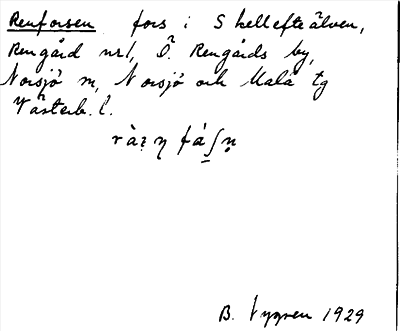 Renforsen fors i Skellefteälven,
Rengård nr1, Ö. Rengårds by,
Norsjö sn, Norsjö och Malå tg
Västerb. l.
B. Nygren 1929